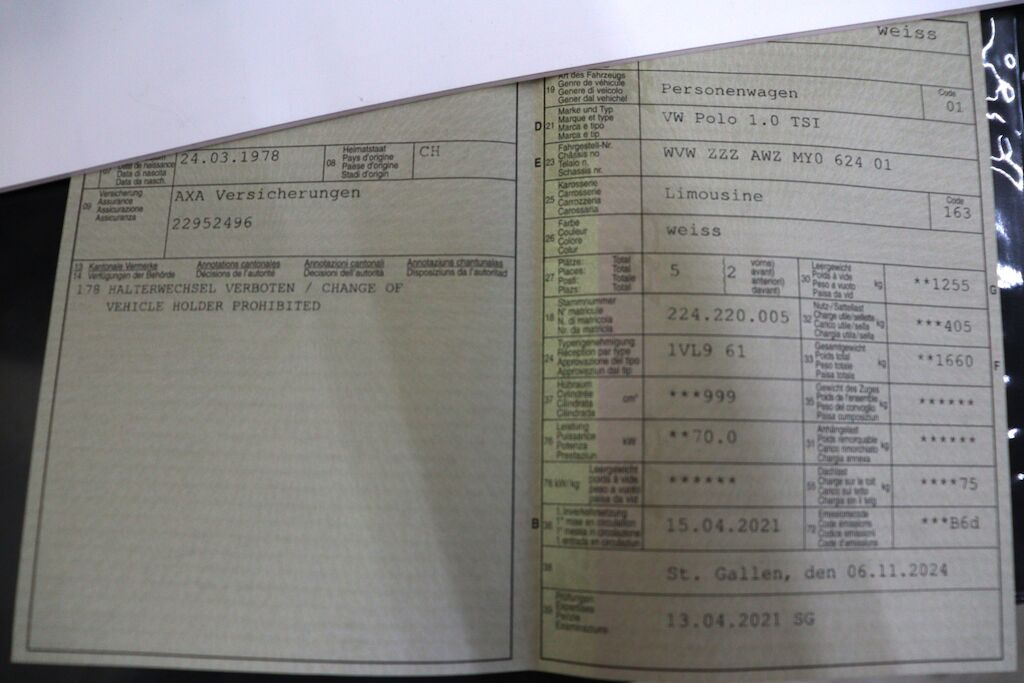 Data da nasch.
24.03.1978
08
Heimatstaat
Pays d'origine
Paese d'origine
Stadi d'origin
CH
09
Versicherung
Assurance
Assicurazione
Assicuranza
AXA Versicherungen
22952496
13
14
Kantonale Vermerke
Verfügungen der Behörde
Annotations cantonales
Décisions de l'autorité
Annotazioni cantonali
Decisioni dell'autorità
Annotaziuns chantunalas
Disposiziuns da l'autoritad
178 HALTERWECHSEL VERBOTEN / CHANGE OF
VEHICLE HOLDER PROHIBITED
weiss
19
Art des Fahrzeugs
Genre de véhicule
Genere di veicolo
Gener dal vehichel
Personenwagen
Code
01
D
21
Marke und Typ
Marque et type
Marca e tipo
Marca e tip
VW Polo 1.0 TSI
E
23
Fahrgestell-Nr.
Châssis no
Telaio n.
Schassis nr.
WVW ZZZ AWZ MY0 624 01
25
Karosserie
Carrosserie
Carrozzeria
Carossaria
Limousine
Code
163
26
Farbe
Couleur
Colore
Colur
weiss
27
Plätze:
Places:
Posti:
Plazs:
Total
Total
Totale
Total
5
(2
vorne)
avant)
anteriori)
davant)
30
Leergewicht
Poids à vide
Peso a vuoto
Paisa da vid
kg
**1255
G
18
Stammnummer
N° matricule
N. di matricola
Nr. da matricla
224.220.005
32
Nutz-/Sattellast
Charge utile/sellette
Carico utile/sella
Chargia utila/sella
kg
***405
24
Typengenehmigung
Réception par type
Approvazione del tipo
Approvaziun dal tip
1VL9 61
33
Gesamtgewicht
Poids total
Peso totale
Paisa totala
kg
**1660
F
37
Hubraum
Cylindrée
Cilindrata
Cilindrada
cm³
***999
35
Gewicht des Zuges
Poids de l'ensemble
Peso del convoglio
Paisa cumposiziun
kg
******
76
Leistung
Puissance
Potenza
Prestaziun
kW
**70.0
31
Anhängelast
Poids remorquable
Carico rimorchiato
Chargia annexa
kg
******
78 kW/kg
Leergewicht
poids à vide
peso a vuoto
paisa da vid
******
55
Dachlast
Charge sur le toit
Carico sul tetto
kg
****75
B
36
1. Inverkehrsetzung
1re mise en circulation
1a messa in circolazione
1. entrada en circulaziun
15.04.2021
72
Emissionscode
Code émissions
Codice emissioni
Code d'emissiuns
***B6d
38
St. Gallen, den 06.11.2024
39
Prüfungen
Expertises
Perizie
Examinaziuns
13.04.2021 SG